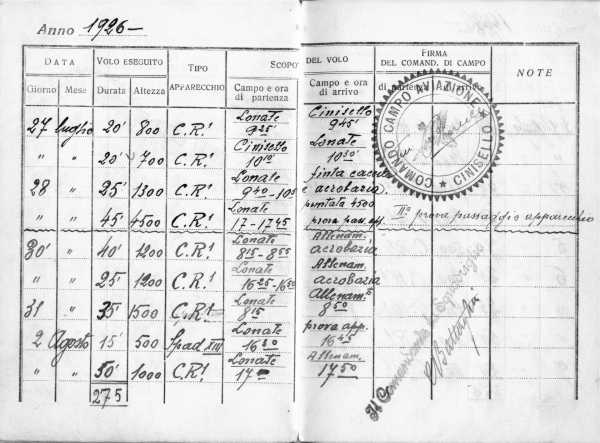 Anno 1926-
DATA VOLO ESEGUITO TIPO APPARECCHIO SCOPO DEL VOLO FIRMA DEL COMAND. DI CAMPO NOTE
Giorno Mese Durata Altezza Campo e ora di partenza Campo e ora di arrivo di partenza di arrivo
27 luglio 20' 800 C.R.1 Lonate 9 25' Cinisello 9 45'
" " 20' 700 C.R.1 Cinisello 10 10 Lonate 10 30'
28 " 25' 1300 C.R.1 Lonate 9 40 - 10 05 finta caccia e acrobazia
" " 45' 4500 C.R.1 Lonate 17 - 17 45 puntata 4500 prova pas. app. IIa prova passaggio apparecchio
30' " 40' 1200 C.R.1 Lonate 8 15 - 8 55 Allenam. acrobazia
" " 25' 1200 C.R.1 Lonate 16 25 - 16 50 Allenam. acrobazia
31 " 35' 1500 C.R.1 Lonate 8 15 Allenam. 8 50
2 Agosto 15' 500 Spad XIII Lonate 16 30 prova app. 16 45
" " 50' 1000 C.R.1 Lonate 17 Allenam. 17 50
275
COMANDO CAMPO AVIAZIONE CINISELLO
Il Comandante la Squadriglia